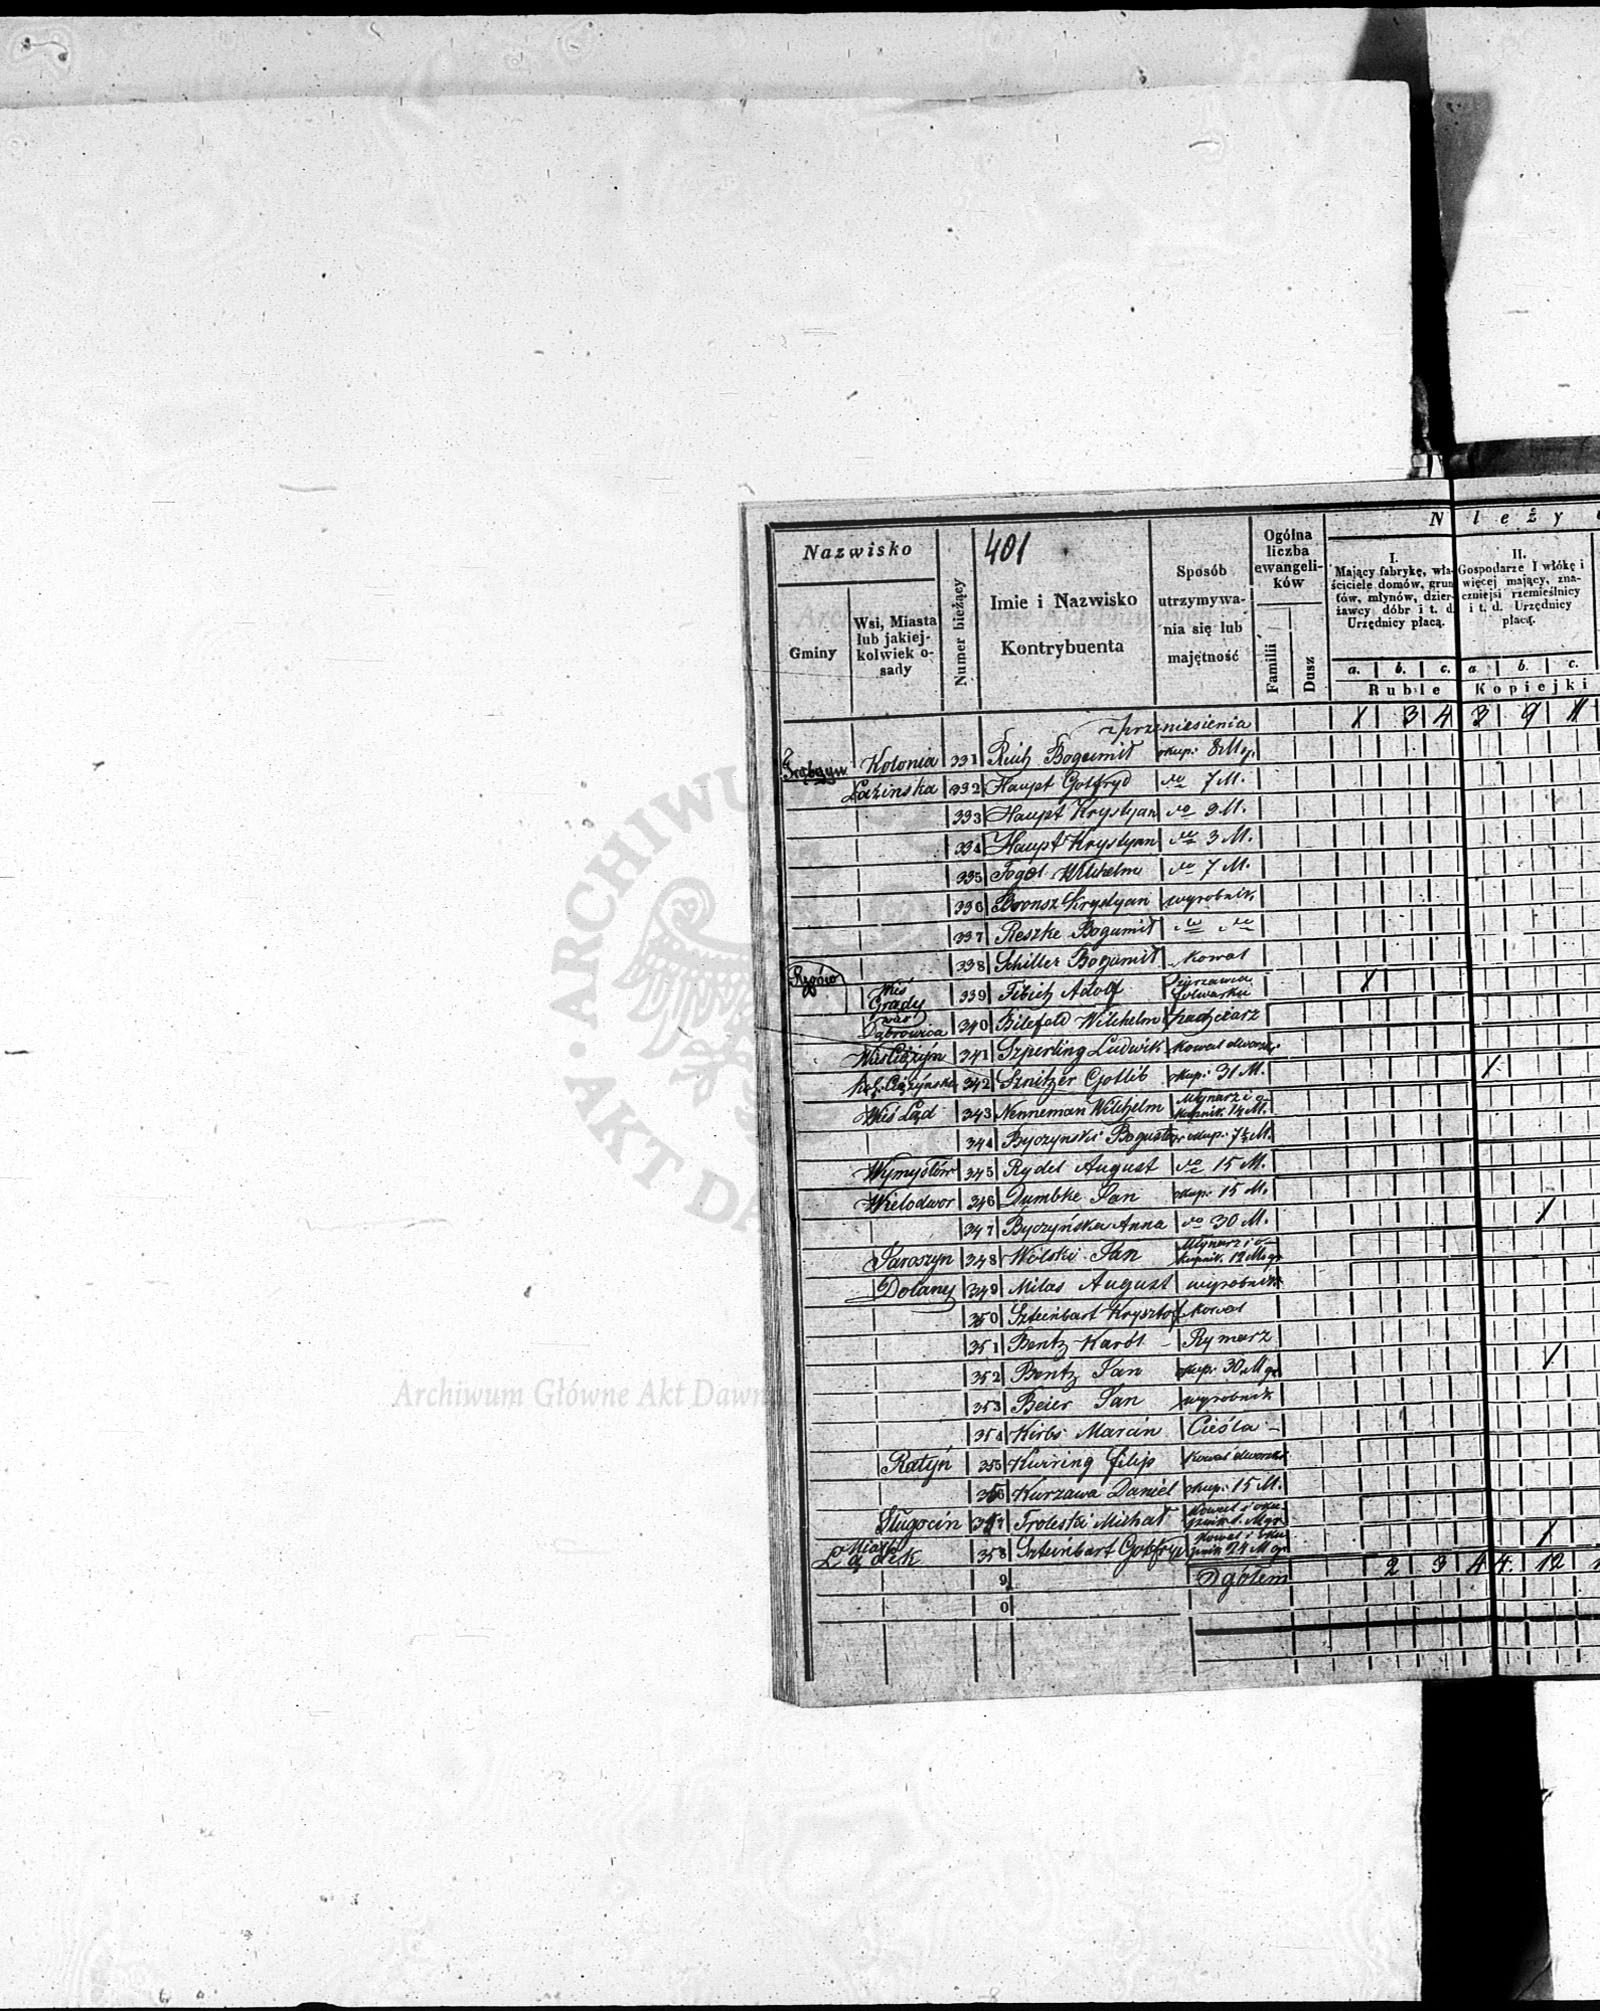 401
Nazwisko
Gminy
Wsi, Miasta
lub jakiej-
kolwiek o-
sady
Numer bieżący
Imie i Nazwisko
Kontrybuenta
Sposób
utrzymywa-
nia się lub
majętność
Ogólna
liczba
ewangeli-
ków
Familii
Dusz
N l e ż y
I.
Mający fabrykę, wła-
ściciele domów, grun
tów, młynów, dzier-
żawcy dóbr i t. d.
Urzędnicy płacą.
II.
Gospodarze I włókę i
więcej mający, zna-
czniejsi rzemieślnicy
i t. d. Urzędnicy
płacą.
a. b. c. a b. c.
Ruble Kopiejki
z przeniesienia 1 3 4 3 9 11
Kolonia 331 Bogumił okup: 8 Mg.
Łazinska 332 Haupt Gotfryd do 7 M.
333 Haupt Krystyan do 9 M.
334 Haupt Krystyan do 3 M.
335 Fogel Wilhelm do 7 M.
336 Krystyan wyrobnik
337 Reszke Bogumił do do
338 Schiller Bogumił Kowal
Rzgów Wieś Grądy 339 Fibich Adolf Dzierżawca folwarku 1
Dąbrowica 340 Bilefeld Wilhelm
Wieś Ciążyń 341 Szperling Ludwik Kowal dworski
Kol. Ciążyńska 342 Sznitzer Gotlib okup: 31 M. 1
Wieś Ląd 343 Nenneman Wilhelm Młynarz i okupnik 14 M.
344 Byczyński okup. 7½ M.
Wymysłów 345 Rydel August do 15 M.
Wielodwor 346 Dumbke Jan okup: 15 M.
347 Byczyńska Anna do 30 M. 1
Jaroszyn 348 Wolski Jan Młynarz i okupnik 12 Mgr
Dolany 349 Milas August wyrobnik
350 Szteinbart Krysztof Kowal
351 Bentz Karol Rymarz
352 Bentz Jan okup. 30 Mgr 1
353 Beier Jan wyrobnik
354 Kirbs Marcin Cieśla
Ratyń 355 Kurring Filip Kowal dworski
356 Kurzawa Daniel okup: 15 M.
Sługocin 357 Michał
Miasto Lądek 358 Szteinbart Gotfryd 24 Mgr 1
9 Ogółem 2 3 4 4 12
0
ARCHIWUM
AKT DA
Archiwum Główne Akt Dawn